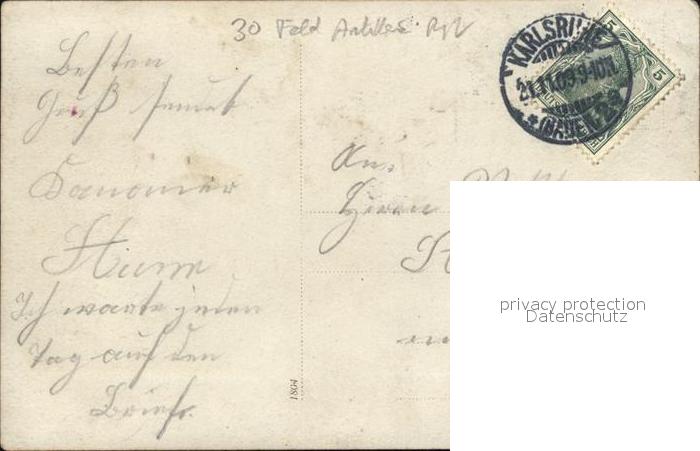 30 Feld Artillerie Rgt
KARLSRUHE
21.11.09.9-10
(BADEN)
5
5
Besten
Gruß sendet
Kanonier
Sturm
Ich warte jeden
Tag auf den
Brief.
An
Herrn
1804
privacy protection
Datenschutz